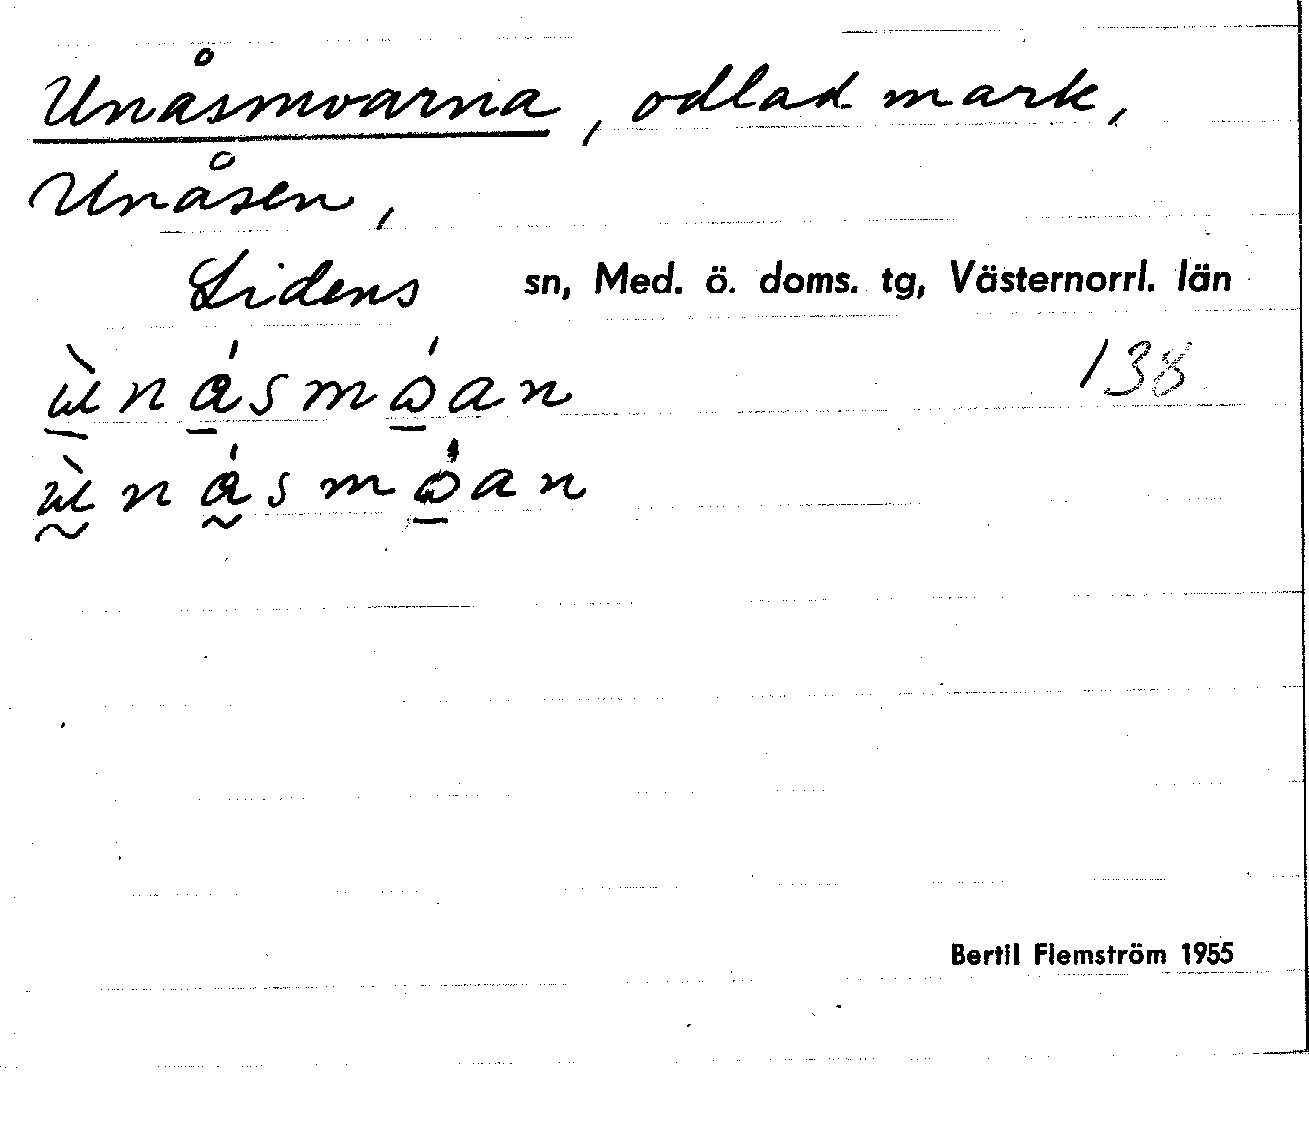 Unåsmvarna, odlad mark,
Unåsen,
Lidens sn, Med. ö. doms. tg, Västernorrl. län
138
Bertil Flemström 1955